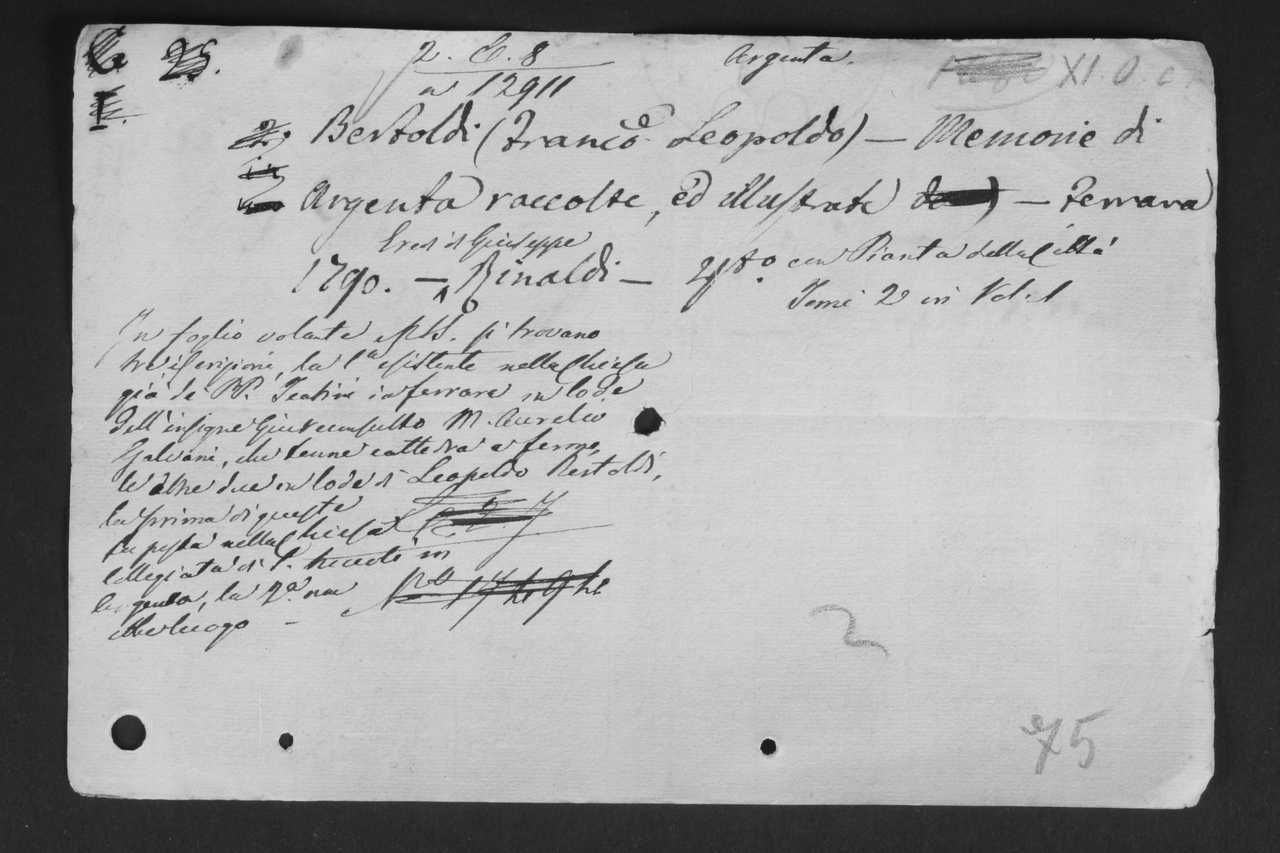 2. E. 8
Argenta.
XI. O. c
a 12911
Bertoldi (Franc.º Leopoldo) — Memorie di
Argenta raccolte, ed illustrate — Ferrara
Eredi di Giuseppe
1790. — Rinaldi — 4to. con Pianta della Città
Tomi 2 in Vol. 1
In foglio volante MS. si trovano
tre iscrizioni, la 1.a esistente nella Chiesa
già de PP. Teatini in Ferrara in lode
dell'insigne Giureconsulto M. Aurelio
Galvani, che tenne cattedra a Fermo,
le altre due in lode di Leopoldo Bertoldi,
la prima di queste
fu posta nella Chiesa
Collegiata di S. in
Argenta, la 2.a in
altro luogo —
2
75